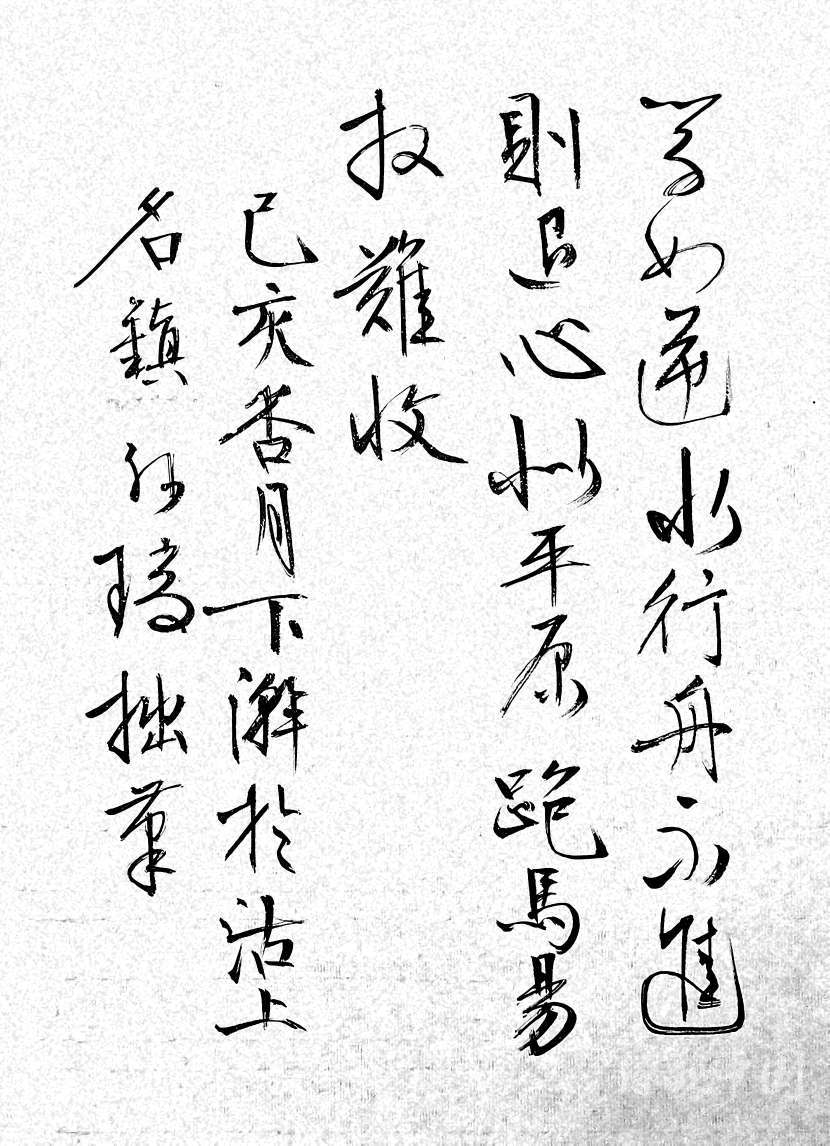 学如逆水行舟不進
則退心似平原跑馬易
放難收
己亥杏月下澣於沽上
名鎮 孙琦拙筆